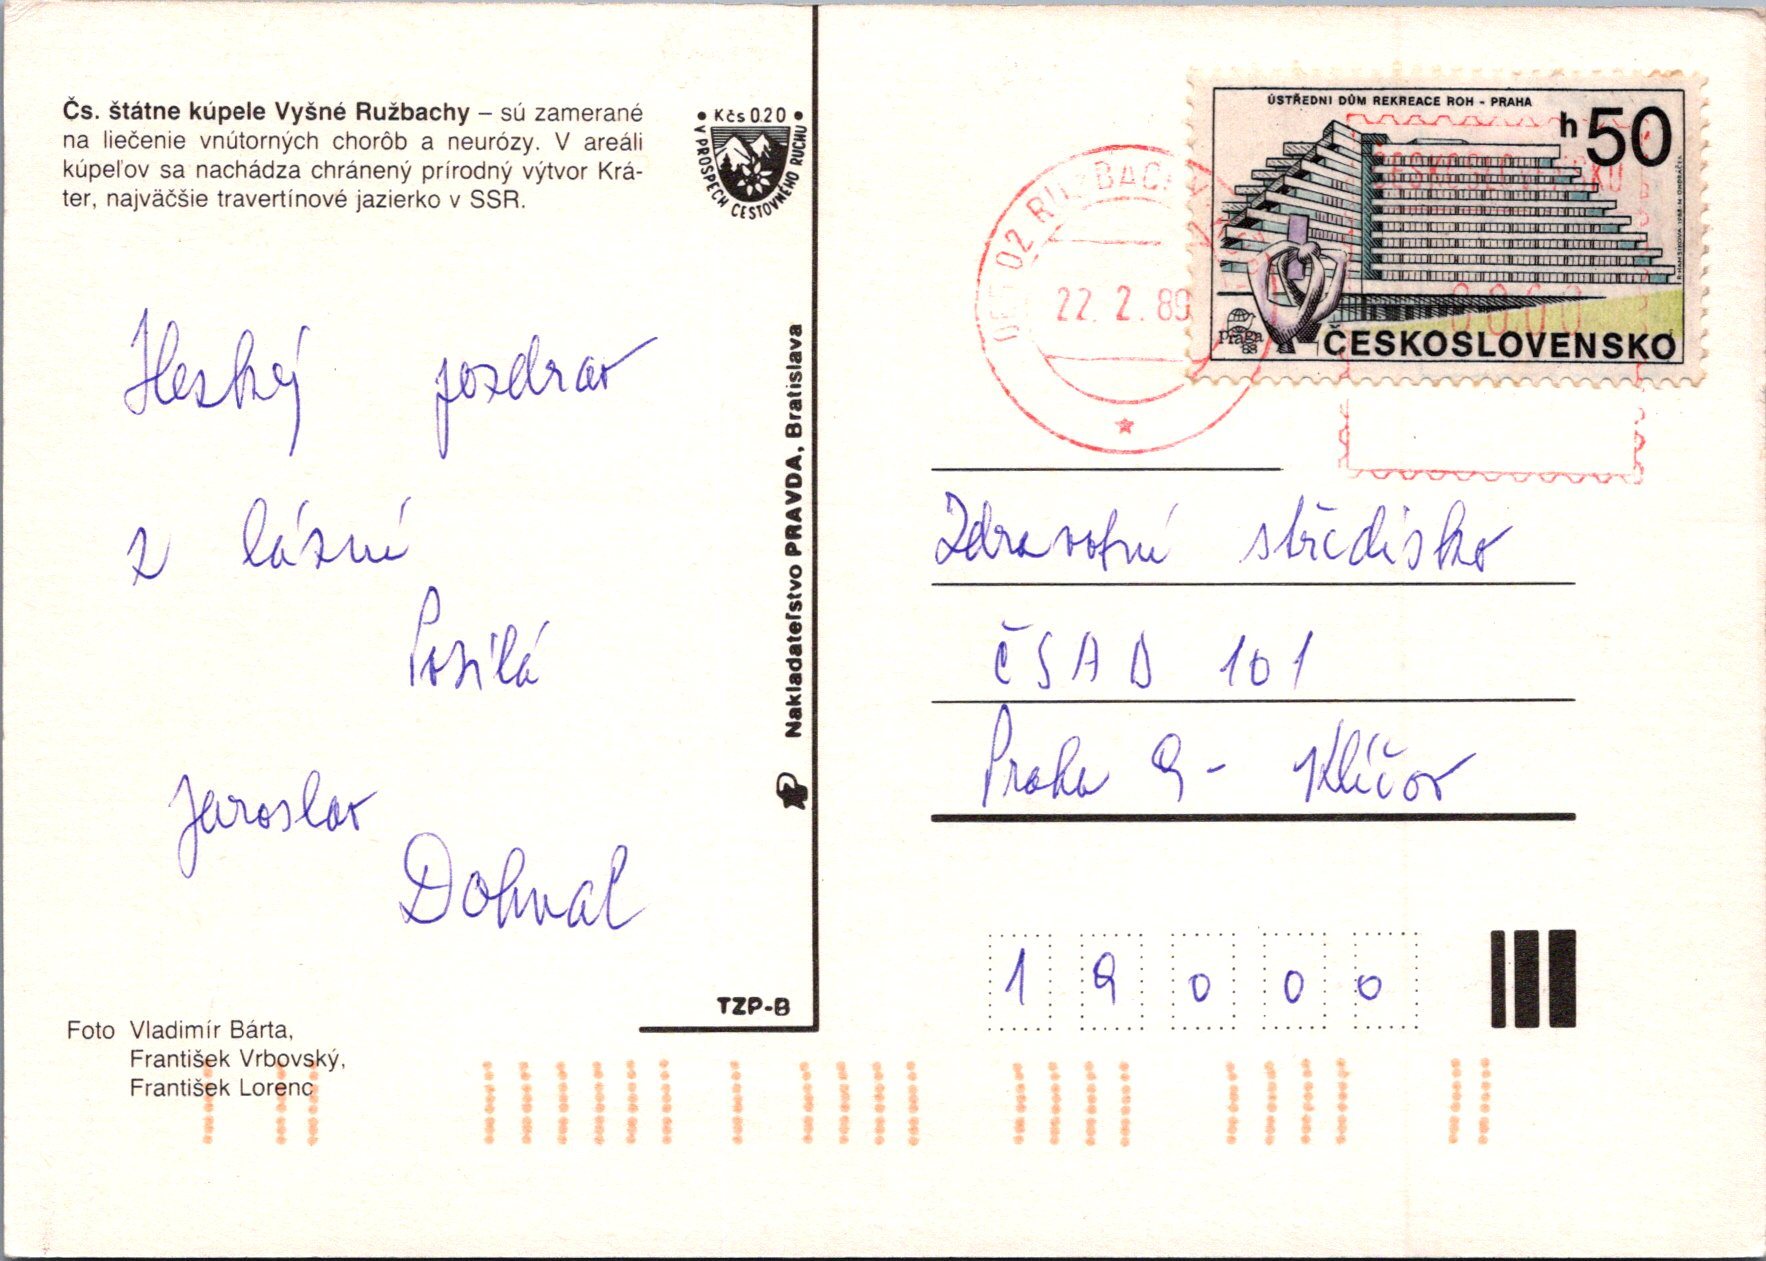 Čs. štátne kúpele Vyšné Ružbachy – sú zamerané
na liečenie vnútorných chorôb a neurózy. V areáli
kúpeľov sa nachádza chránený prírodný výtvor Krá-
ter, najväčšie travertínové jazierko v SSR.
• Kčs 0.20 •
V PROSPECH CESTOVNÉHO RUCHU
Hezký pozdrav
z lázní
Posílá
Jaroslav
Dohnal
Foto Vladimír Bárta,
František Vrbovský,
František Lorenc
TZP-B
Nakladateľstvo PRAVDA, Bratislava
02 RUŽBACHY
22. 2. 89
ÚSTŘEDNÍ DŮM REKREACE ROH - PRAHA
h 50
praga
88
ČESKOSLOVENSKO
ČESKOSLOVENSKO
0060
Zdravotní středisko
ČSAD 101
Praha 9 - Klíčov
19000